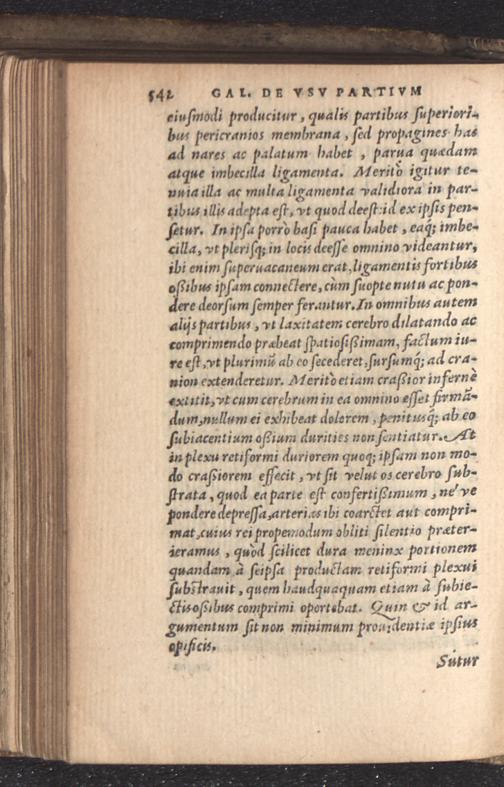 542 GAL. DE VSV PARTIVM
eiusmodi producitur, qualis partibus superiori-
bus pericranios membrana, sed propagines has
ad nares ac palatum habet, parua quædam
atque imbecilla ligamenta. Meritò igitur te-
nuia illa ac multa ligamenta validiora in par-
tibus illis adepta est, vt quod deest: id ex ipsis pen-
setur. In ipsa porrò basi pauca habet, eaq; imbe-
cilla, vt plerisq; in locis deesse omnino videantur,
ibi enim superuacaneum erat, ligamentis fortibus
oßibus ipsam connectere, cùm suopte nutu ac pon-
dere deorsum semper ferantur. In omnibus autem
alijs partibus, vt laxitatem cerebro dilatando ac
comprimendo præbeat spatiosißimam, factum iu-
re est, vt plurimũ ab eo secederet, sursumq́; ad cra-
nion extenderetur. Meritò etiam craßior infernè
extitit, vt cum cerebrum in ea omnino esset firmã-
dum, nullum ei exhibeat dolorem, penitusq́; ab eo
subiacentium oßium durities non sentiatur. At
in plexu retiformi duriorem quoq; ipsam non mo-
do craßiorem effecit, vt sit velut os cerebro sub-
strata, quod ea parte est confertißimum, ne' ve
pondere depressa, arterias ibi coarctet aut compri-
mat, cuius rei propemodum obliti silentio præter-
ieramus, quòd scilicet dura meninx portionem
quandam à seipsa productam retiformi plexui
substrauit, quem haudquaquam etiam à subie-
ctis oßibus comprimi oportebat. Quin & id ar-
gumentum sit non minimum prouidentiæ ipsius
opificis.
Sutur